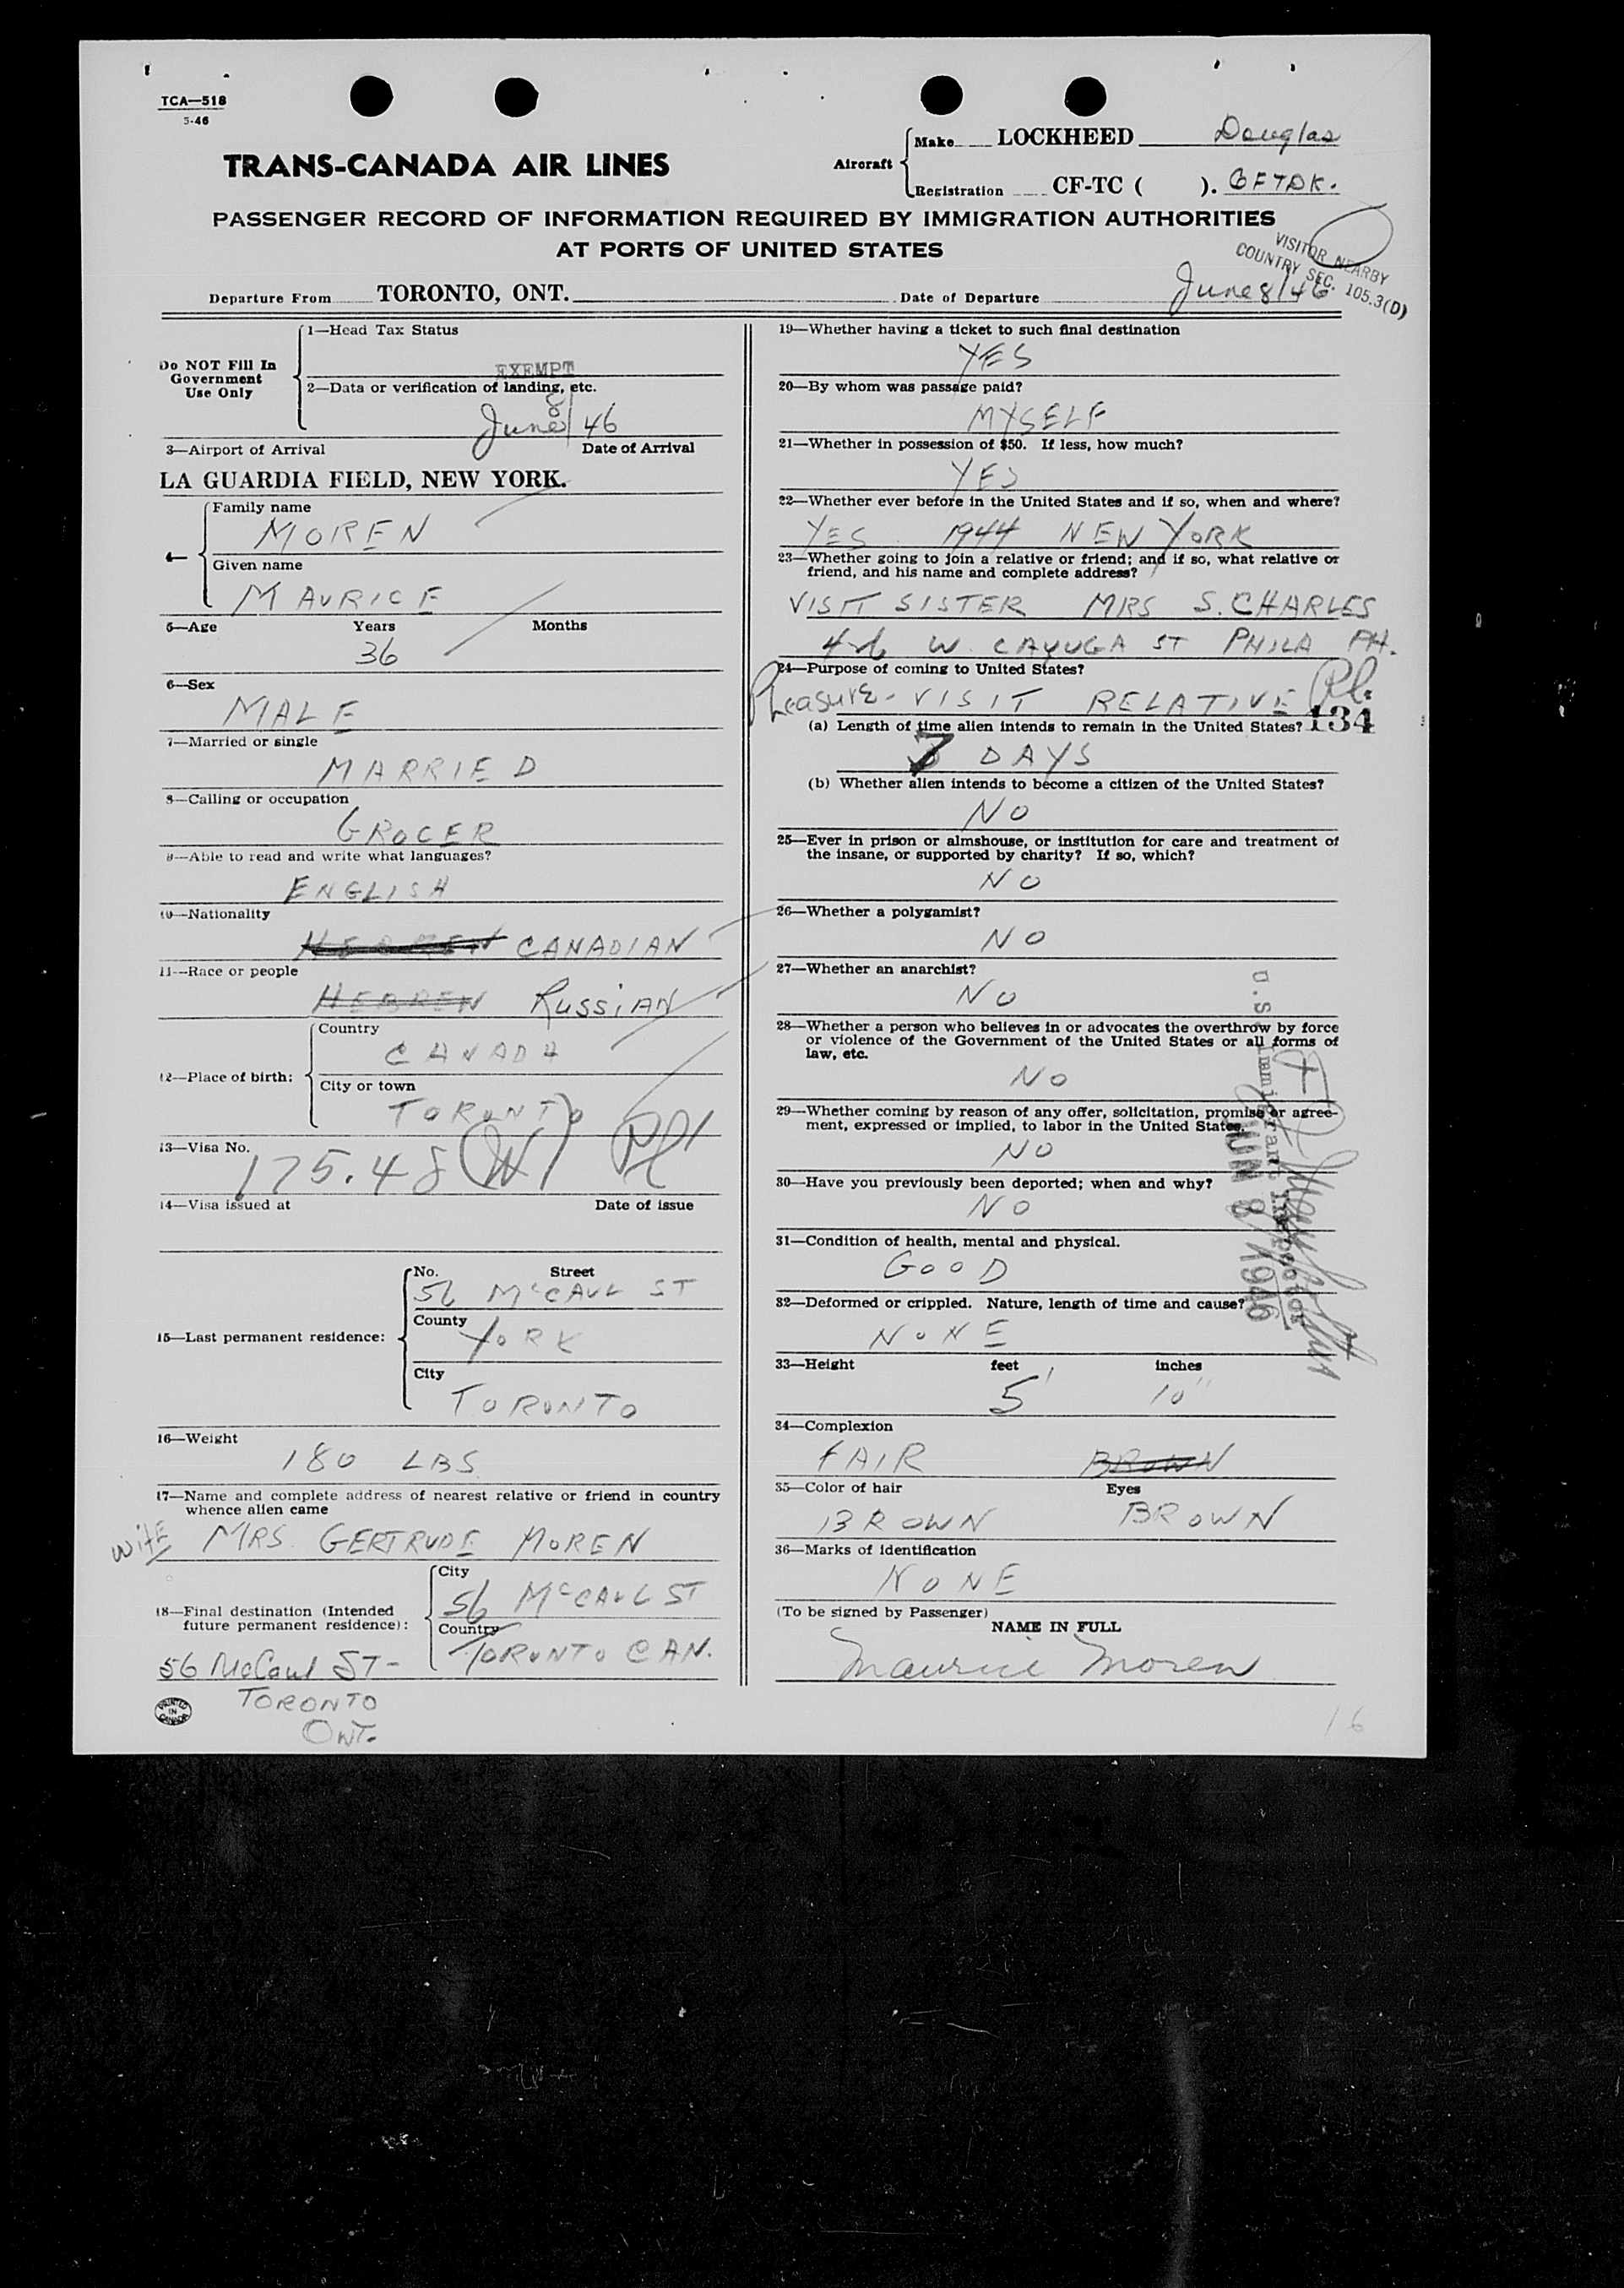 TCA—518
5-46
TRANS-CANADA AIR LINES
Aircraft
Make LOCKHEED Douglas
Registration CF-TC ( ). CFTDK.
PASSENGER RECORD OF INFORMATION REQUIRED BY IMMIGRATION AUTHORITIES
AT PORTS OF UNITED STATES
VISITOR NEARBY
COUNTRY SEC. 105.3(D)
Departure From TORONTO, ONT. Date of Departure June 8/46
Do NOT Fill In
Government
Use Only
1—Head Tax Status
EXEMPT
2—Data or verification of landing, etc.
June 8/46
3—Airport of Arrival Date of Arrival
LA GUARDIA FIELD, NEW YORK.
4—
Family name
MOREN
Given name
MAURICE
5—Age Years Months
36
6—Sex
MALE
7—Married or single
MARRIED
8—Calling or occupation
GROCER
9—Able to read and write what languages?
ENGLISH
10—Nationality
HEBREW CANADIAN
11—Race or people
HEBREW RUSSIAN
12—Place of birth:
Country
CANADA
City or town
TORONTO
13—Visa No.
175.48 (W)
14—Visa issued at Date of issue
15—Last permanent residence:
No. Street
56 McCAUL ST
County
YORK
City
TORONTO
16—Weight
180 LBS
17—Name and complete address of nearest relative or friend in country
whence alien came
wife MRS. GERTRUDE MOREN
18—Final destination (Intended
future permanent residence):
City
56 McCAUL ST
Country
TORONTO CAN.
56 McCaul ST-
TORONTO
ONT.
PRINTED
IN
CANADA
19—Whether having a ticket to such final destination
YES
20—By whom was passage paid?
MYSELF
21—Whether in possession of $50. If less, how much?
YES
22—Whether ever before in the United States and if so, when and where?
YES 1944 NEW YORK
23—Whether going to join a relative or friend; and if so, what relative or
friend, and his name and complete address?
VISIT SISTER MRS S. CHARLES
W. CAYUGA ST PHILA PA.
24—Purpose of coming to United States?
Pleasure - VISIT RELATIVE
134
(a) Length of time alien intends to remain in the United States?
7 DAYS
(b) Whether alien intends to become a citizen of the United States?
NO
25—Ever in prison or almshouse, or institution for care and treatment of
the insane, or supported by charity? If so, which?
NO
26—Whether a polygamist?
NO
27—Whether an anarchist?
NO
28—Whether a person who believes in or advocates the overthrow by force
or violence of the Government of the United States or all forms of
law, etc.
NO
29—Whether coming by reason of any offer, solicitation, promise or agree-
ment, expressed or implied, to labor in the United States.
NO
30—Have you previously been deported; when and why?
NO
31—Condition of health, mental and physical.
GOOD
32—Deformed or crippled. Nature, length of time and cause?
NONE
33—Height feet inches
5' 10"
34—Complexion
FAIR BROWN
35—Color of hair Eyes
BROWN BROWN
36—Marks of identification
NONE
(To be signed by Passenger)
NAME IN FULL
Maurice Moren
U.S. Immigrant Inspector
JUN 8 1946
16